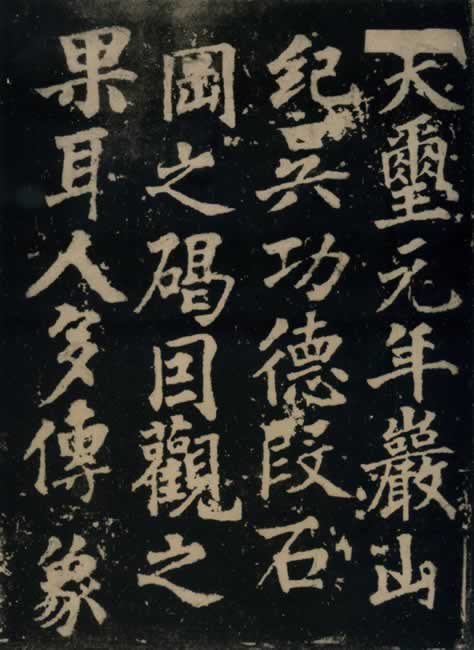 天璽元年巖山
紀吳功德段石
岡之碣因觀之
果耳人多傳象